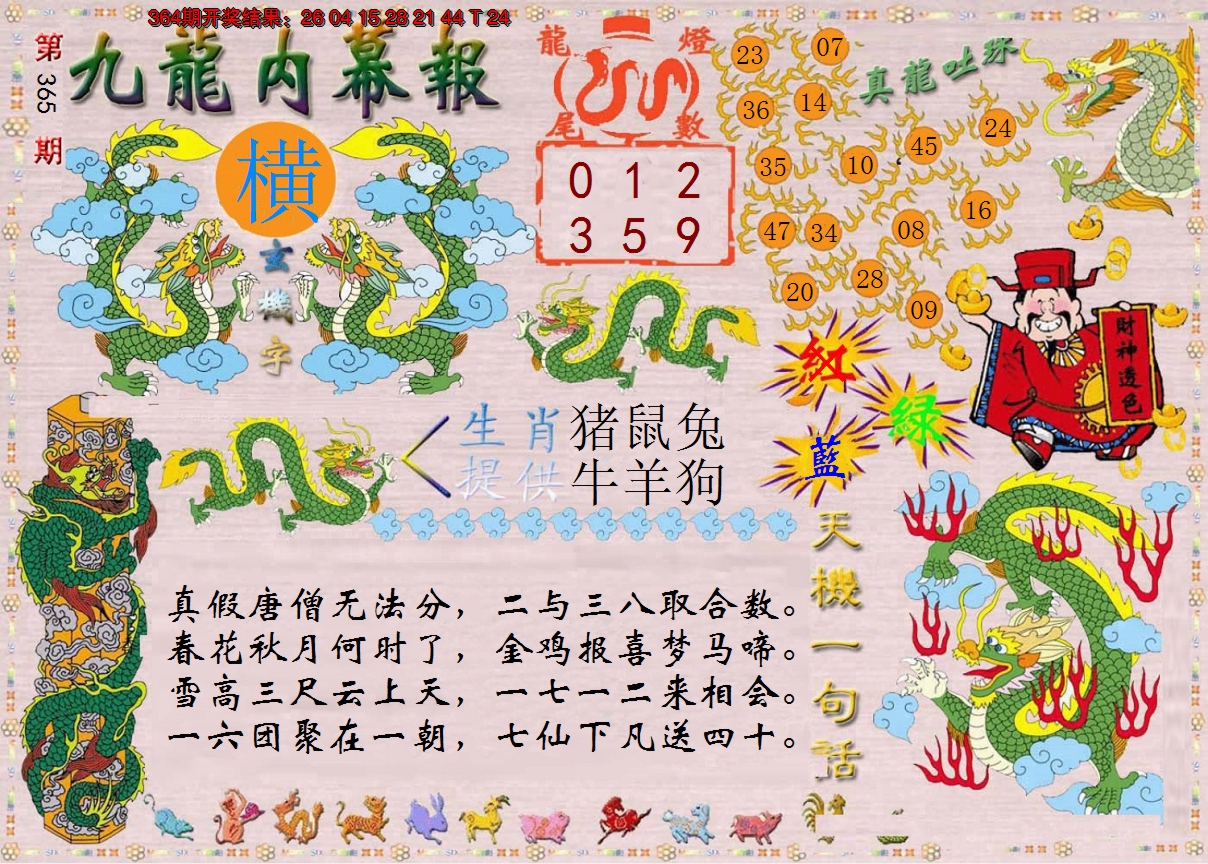 364期开奖结果：26 04 15 28 21 44 T 24
第365期
九龍内幕報
龍燈尾數
0 1 2
3 5 9
真龍吐珠
23
07
36
14
45
24
35
10
16
47
34
08
20
28
09
横
玄機字
紅
綠
藍
財神透色
生肖提供
猪鼠兔
牛羊狗
天機一句話
真假唐僧无法分，二与三八取合数。
春花秋月何时了，金鸡报喜梦马啼。
雪高三尺云上天，一七一二来相会。
一六团聚在一朝，七仙下凡送四十。